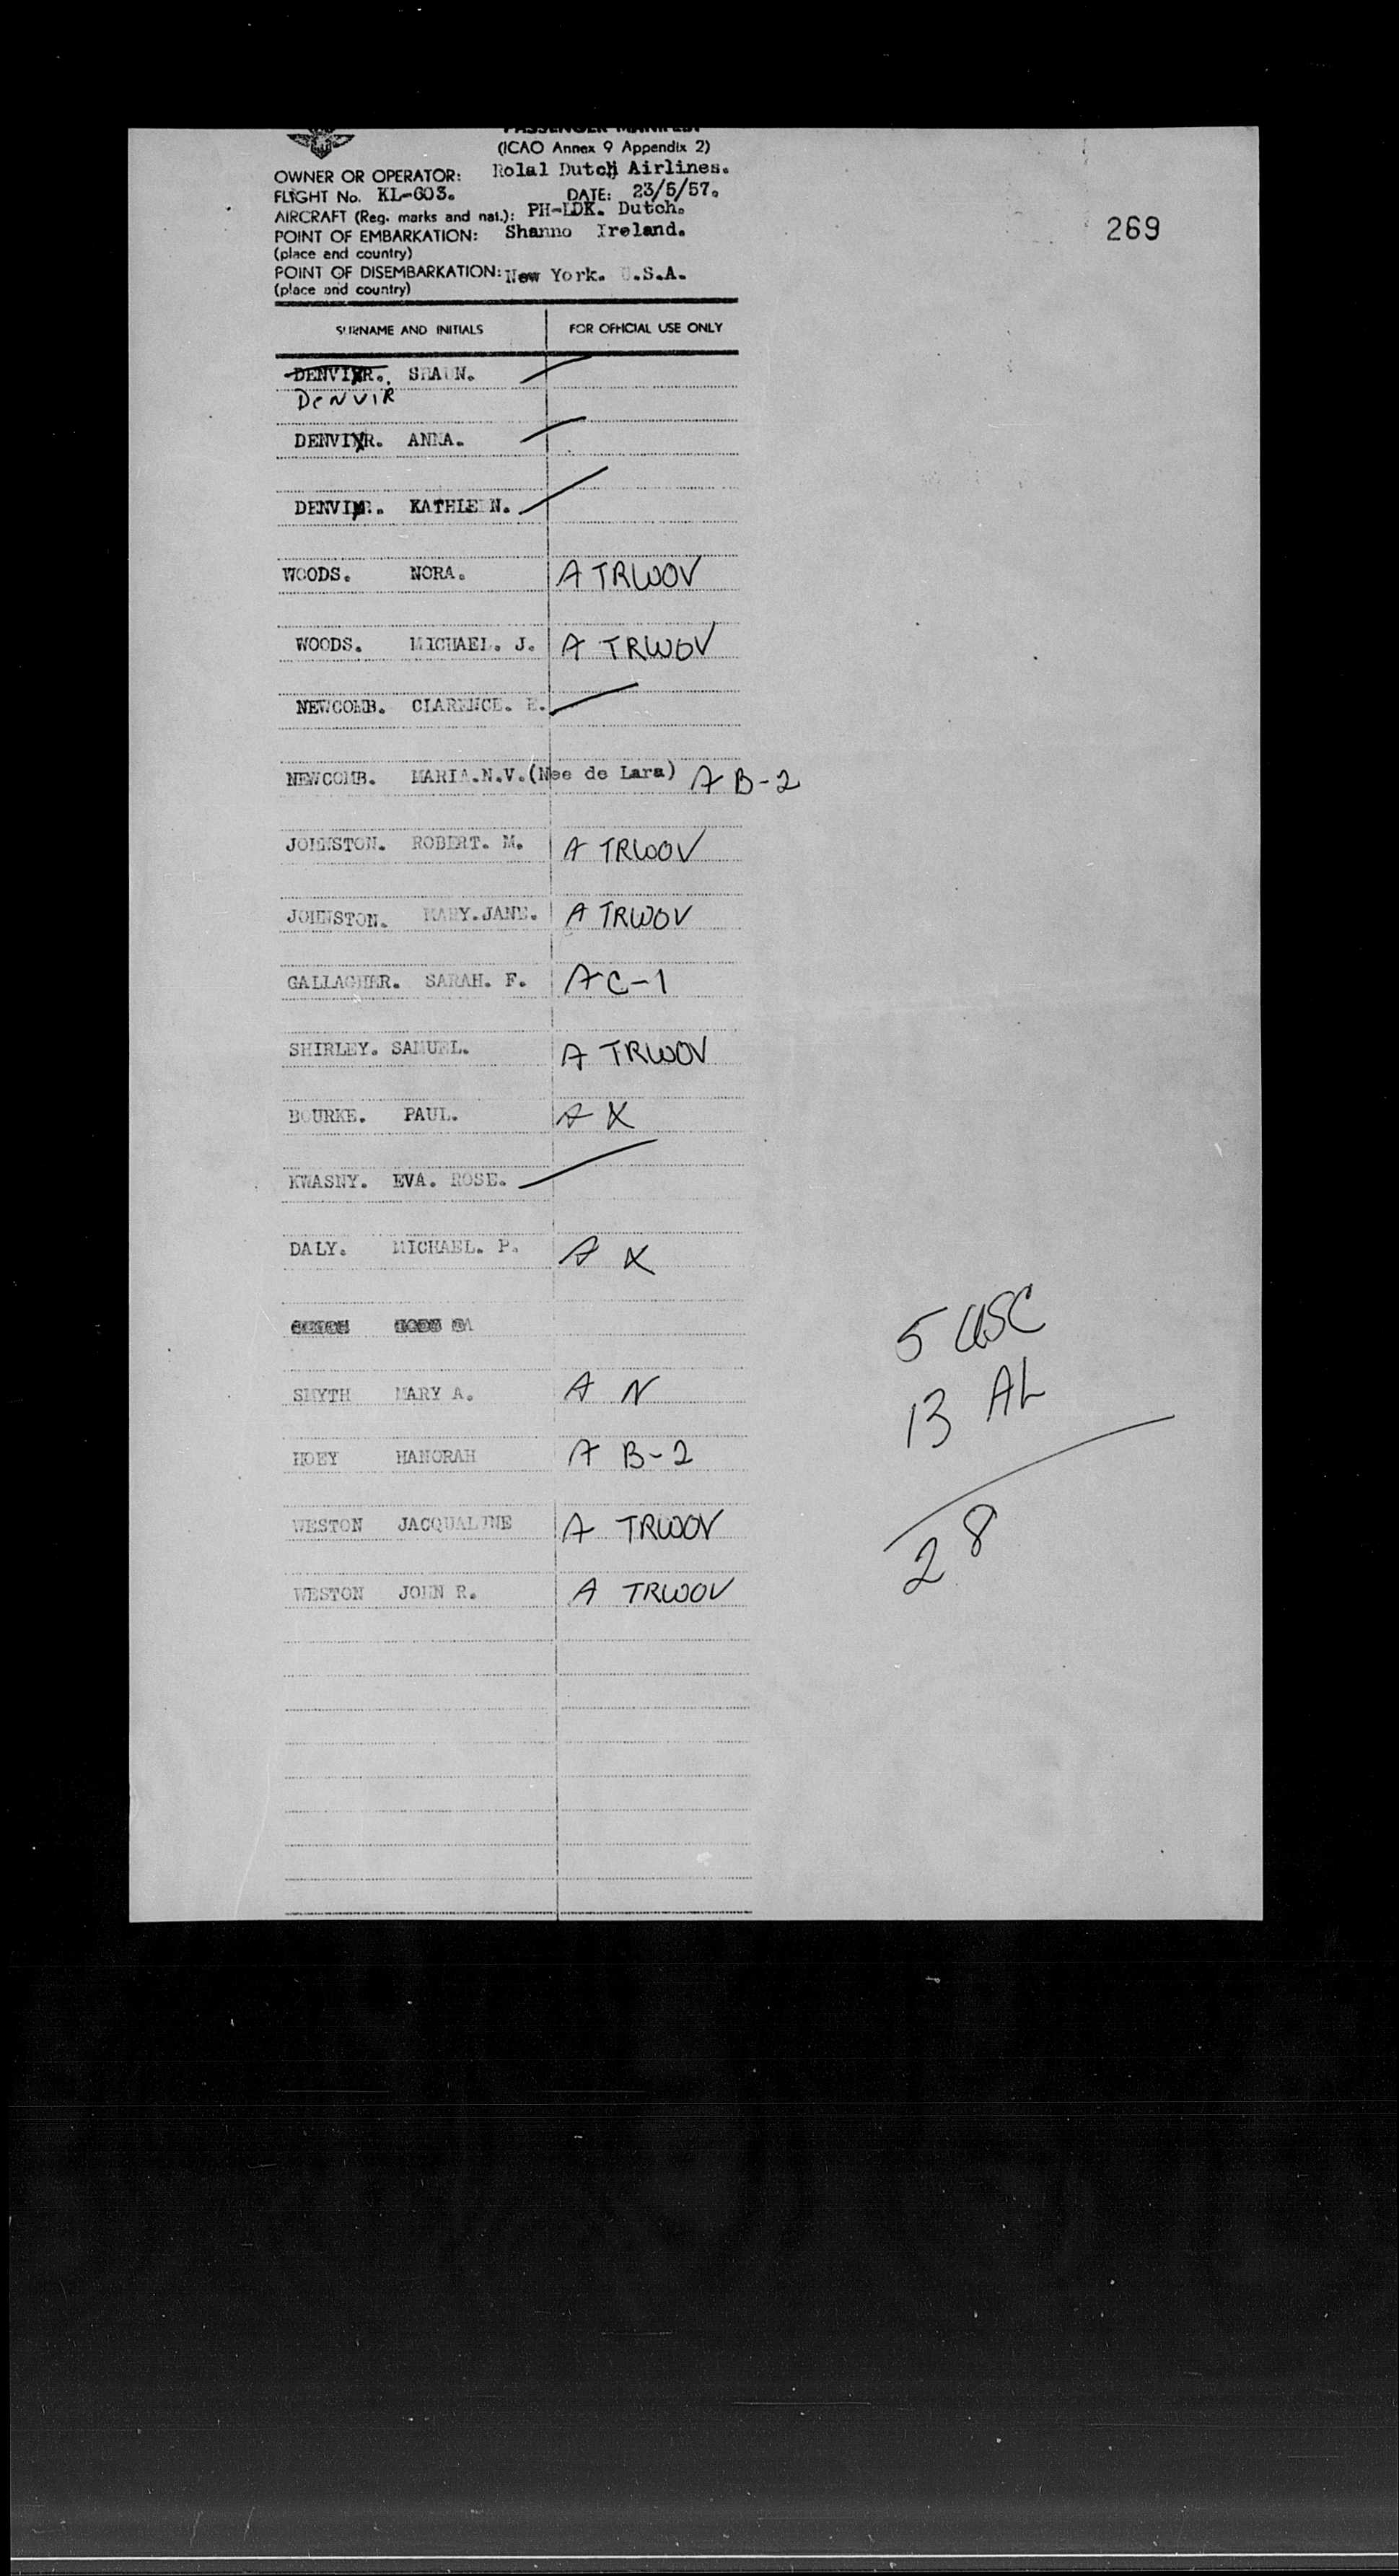 PASSENGER MANIFEST
(ICAO Annex 9 Appendix 2)
OWNER OR OPERATOR: Rolal Dutch Airlines.
FLIGHT No. KL-603. DATE: 23/5/57.
AIRCRAFT (Reg. marks and nat.): PH-LDK. Dutch.
269
POINT OF EMBARKATION: Shanno Ireland.
(place and country)
POINT OF DISEMBARKATION: New York. U.S.A.
(place and country)
SURNAME AND INITIALS FOR OFFICIAL USE ONLY
DENVIR. SHAUN.
DENVIR
DENVIR. ANNA.
DENVIR. KATHLEEN.
WOODS. NORA. A TRWOV
WOODS. MICHAEL. J. A TRWOV
NEWCOMB. CLARENCE. E.
NEWCOMB. MARIA.N.V.(Nee de Lara) A B-2
JOHNSTON. ROBERT. M. A TRWOV
JOHNSTON. MARY.JANE. A TRWOV
GALLAGHER. SARAH. F. A C-1
SHIRLEY. SAMUEL. A TRWOV
BOURKE. PAUL. A X
KWASNY. EVA. ROSE.
DALY. MICHAEL. P. A X
SMYTH MARY A. A N
HOEY HANORAH A B-2
WESTON JACQUALINE A TRWOV
WESTON JOHN R. A TRWOV
5 USC
13 AL
28